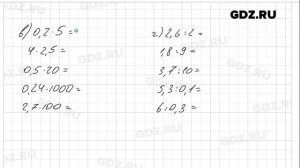 GDZ.RU
в) 0,2·5=0
4·2,5=
0,5·20=
0,24·1000=
2,7·100=
г) 2,6:2=
1,8:9=
3,7:10=
5,3:0,1=
6:0,3=
GDZ.RU